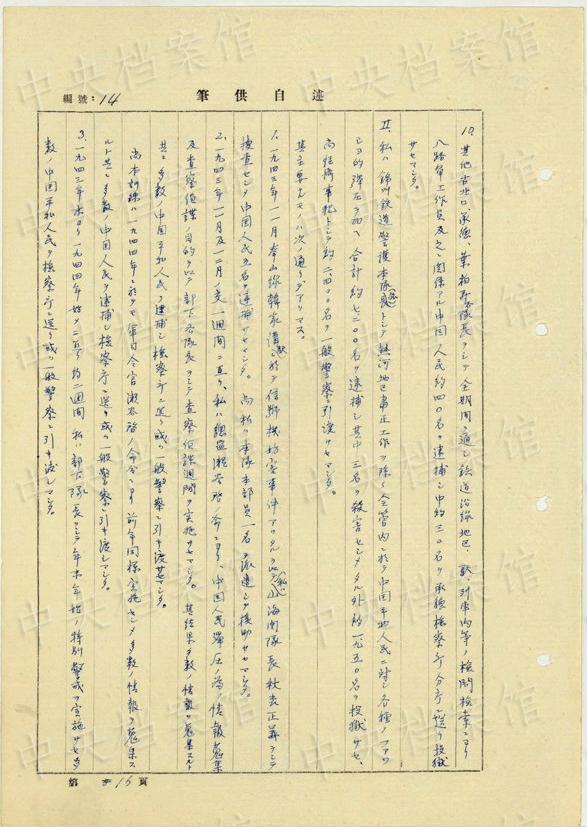 編號：14
筆供自述
10. 其他古北口、承徳、葉柏寿各隊長ヲシテ全期間ヲ通シ鉄道沿線地区、駅、列車内等ノ検問検索ニヨリ
八路軍工作員及之ニ関係アル中国人民約四〇名ヲ逮捕シ中約三〇名ヲ承徳検察庁分庁ニ送リ投獄
サセマシタ。
五、私ハ錦州鉄道警護本隊長トシテ熱河地区粛正工作ヲ除ク全管内ニ於テ中国平和人民ニ対シ各種ノファッ
ショ的弾圧ヲ加ヘ合計約七三〇〇名ヲ逮捕シ其中三名ヲ殺害セシメタル外約一九五〇名ヲ投獄サセ、
尚経済事犯トシテ約二、四〇〇名ヲ一般警察ニ引渡サセマシタ。
其主要ナモノハ次ノ通リデアリマス。
1. 一九四三年一一月奉山線韓家溝駅ニ於テ信號機妨害事件アリタル以テ私ハ山海関隊長秋吉正義ヲシテ
捜査セシメ中国人民五名ヲ逮捕サセマシタ。尚私ハ本隊本部員一名ヲ派遣シテ援助サセマシタ。
2. 一九四三年一一月及一二月ノ交一週間ニ亘リ、私ハ總監瀬谷啓ノ命ニヨリ、中国人民弾圧ノ為ノ情報蒐集
及査察偵諜ノ目的ヲ以テ部下各隊長ヲシテ査察偵諜週間ヲ実施サセマシタ。其結果多数ノ情報ヲ蒐集スルト
共ニ多数ノ中国平和人民ヲ逮捕シ検察庁ニ送リ或ハ一般警察ニ引キ渡サセマシタ。
尚本訓練ハ一九四四年ニ於テモ軍司令官瀬谷啓ノ命令ニヨリ前年同様実施セシメ多数ノ情報ヲ蒐集ス
ルト共ニ多数ノ中国人民ヲ逮捕シ検察庁ニ送リ或ハ一般警察ニ引キ渡シマシタ。
3. 一九四三年末ヨリ一九四四年始メニ亘リ約二週間、私ハ部下隊長ヲシテ年末年始ノ特別警戒ヲ実施サセ多
数ノ中国平和人民ヲ検察庁ニ送リ或ハ一般警察ニ引キ渡シマシタ。
第 15 頁
中央档案馆